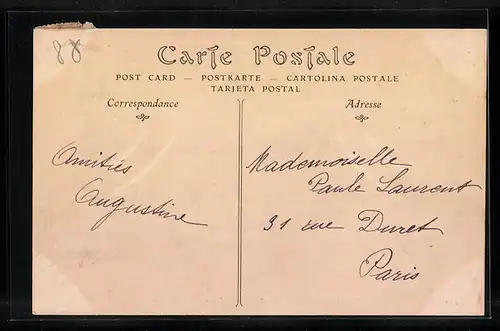 88
Carte Postale
POST CARD — POSTKARTE — CARTOLINA POSTALE
TARJETA POSTAL
Correspondance
Adresse
Amitiés
Augustine
Mademoiselle
Paule Laurent
31 rue Duret
Paris